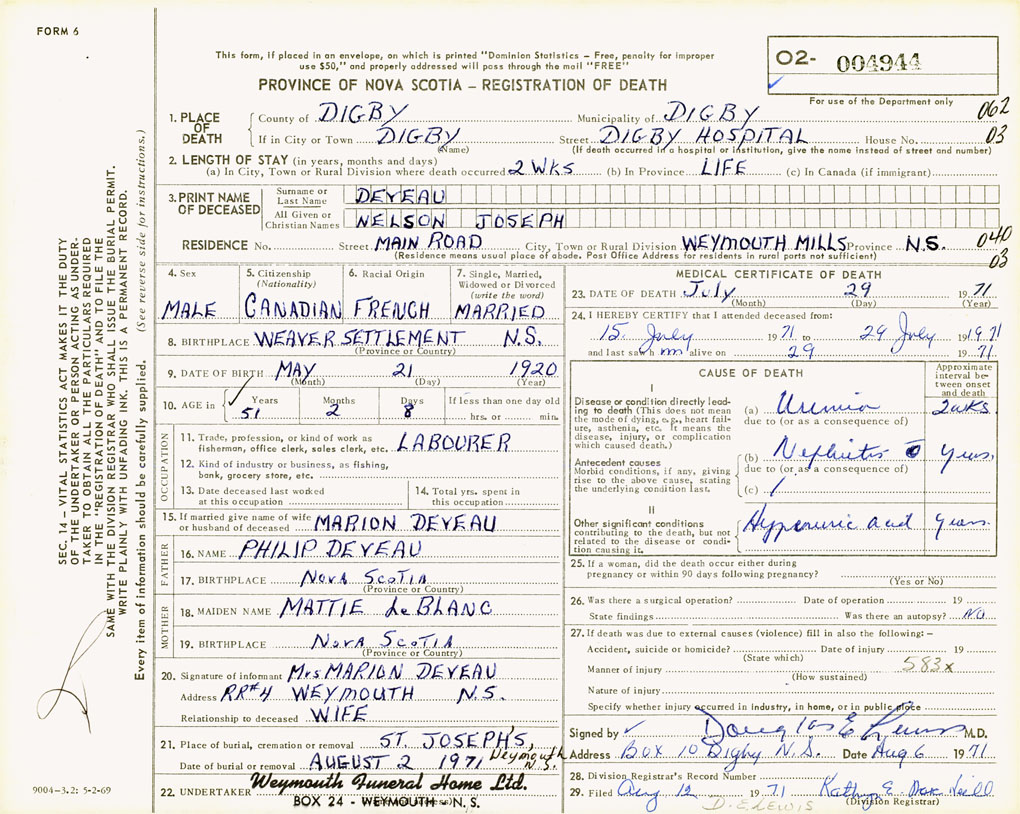 FORM 6
This form, if placed in an envelope, on which is printed "Dominion Statistics – Free, penalty for improper
use $50," and properly addressed will pass through the mail "FREE"
O2- 004944
For use of the Department only
PROVINCE OF NOVA SCOTIA – REGISTRATION OF DEATH
1. PLACE OF DEATH
County of DIGBY Municipality of DIGBY 062
If in City or Town DIGBY Street DIGBY HOSPITAL House No. 03
(Name) (If death occurred in a hospital or institution, give the name instead of street and number)
2. LENGTH OF STAY (in years, months and days)
(a) In City, Town or Rural Division where death occurred 2 WKS (b) In Province LIFE (c) In Canada (if immigrant)
3. PRINT NAME OF DECEASED
Surname or Last Name DEVEAU
All Given or Christian Names NELSON JOSEPH
RESIDENCE No. Street MAIN ROAD City, Town or Rural Division WEYMOUTH MILLS Province N.S. 040
(Residence means usual place of abode. Post Office Address for residents in rural parts not sufficient) 03
4. Sex MALE
5. Citizenship (Nationality) CANADIAN
6. Racial Origin FRENCH
7. Single, Married, Widowed or Divorced (write the word) MARRIED
8. BIRTHPLACE WEAVER SETTLEMENT N.S.
(Province or Country)
9. DATE OF BIRTH MAY 21 1920
(Month) (Day) (Year)
10. AGE in Years Months Days If less than one day old
51 2 8 hrs. or min.
OCCUPATION
11. Trade, profession, or kind of work as
fisherman, office clerk, sales clerk, etc. LABOURER
12. Kind of industry or business, as fishing,
bank, grocery store, etc.
13. Date deceased last worked at this occupation
14. Total yrs. spent in this occupation
15. If married give name of wife
or husband of deceased MARION DEVEAU
FATHER
16. NAME PHILIP DEVEAU
17. BIRTHPLACE NOVA SCOTIA
(Province or Country)
MOTHER
18. MAIDEN NAME MATTIE LeBLANC
19. BIRTHPLACE NOVA SCOTIA
(Province or Country)
20. Signature of informant Mrs MARION DEVEAU
Address RR#4 WEYMOUTH N.S.
Relationship to deceased WIFE
21. Place of burial, cremation or removal ST. JOSEPH'S, Weymouth N.S.
Date of burial or removal AUGUST 2 1971
22. UNDERTAKER Weymouth Funeral Home Ltd.
BOX 24 - WEYMOUTH - N. S.
MEDICAL CERTIFICATE OF DEATH
23. DATE OF DEATH July 29 1971
(Month) (Day) (Year)
24. I HEREBY CERTIFY that I attended deceased from:
15 July 1971 to 29 July 1971
and last saw him alive on 29 1971
CAUSE OF DEATH
Approximate interval between onset and death
I
Disease or condition directly leading to death (This does not mean the mode of dying, e.g., heart failure, asthenia, etc. It means the disease, injury, or complication which caused death.)
(a) Uremia 2wks
due to (or as a consequence of)
Antecedent causes
Morbid conditions, if any, giving rise to the above cause, stating the underlying condition last.
(b) Nephritis Years
due to (or as a consequence of)
(c)
II
Other significant conditions contributing to the death, but not related to the disease or condition causing it.
Hyperuric acid years
25. If a woman, did the death occur either during
pregnancy or within 90 days following pregnancy?
(Yes or No)
26. Was there a surgical operation? Date of operation 19
State findings Was there an autopsy? NO
27. If death was due to external causes (violence) fill in also the following: –
Accident, suicide or homicide? Date of injury 19
(State which)
Manner of injury 583x
(How sustained)
Nature of injury
Specify whether injury occurred in industry, in home, or in public place
Signed by Douglas E Lewis M.D.
Address Box 10 Digby N.S. Date Aug 6 1971
28. Division Registrar's Record Number
29. Filed Aug 12 1971 Kathy E.
(Division Registrar)
D.E. LEWIS
SEC. 14 – VITAL STATISTICS ACT MAKES IT THE DUTY
OF THE UNDERTAKER OR PERSON ACTING AS UNDER-
TAKER TO OBTAIN ALL THE PARTICULARS REQUIRED
IN THE "REGISTRATION OF DEATH" AND TO FILE THE
SAME WITH THE DIVISION REGISTRAR WHO SHALL ISSUE THE BURIAL PERMIT.
WRITE PLAINLY WITH UNFADING INK. THIS IS A PERMANENT RECORD.
Every item of information should be carefully supplied. (See reverse side for instructions.)
9004-3.2: 5-2-69